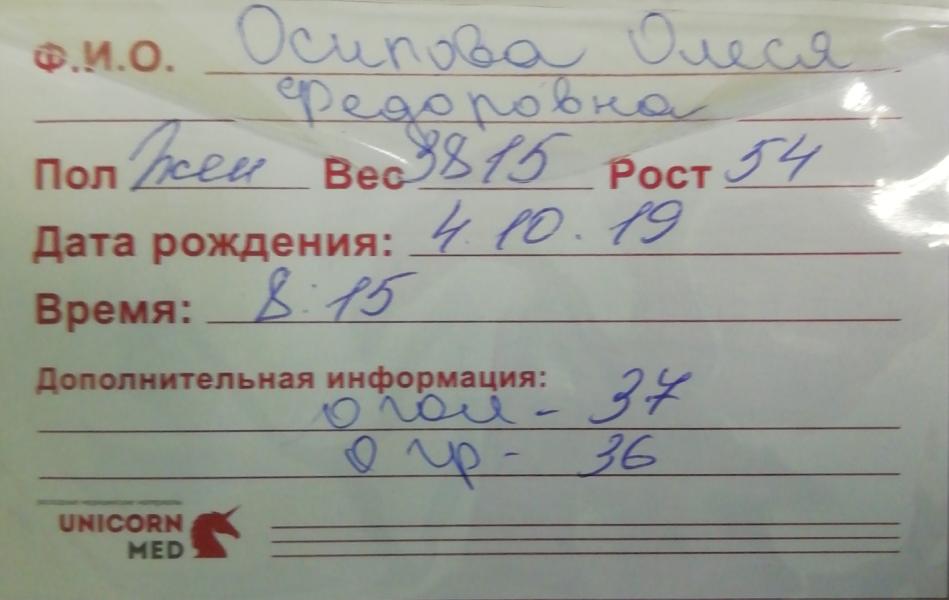 Ф.И.О. Осипова Олеся
Федоровна
Пол Жен Вес 3815 Рост 54
Дата рождения: 4.10.19
Время: 8:15
Дополнительная информация:
о гол - 37
о гр - 36
UNICORN
MED